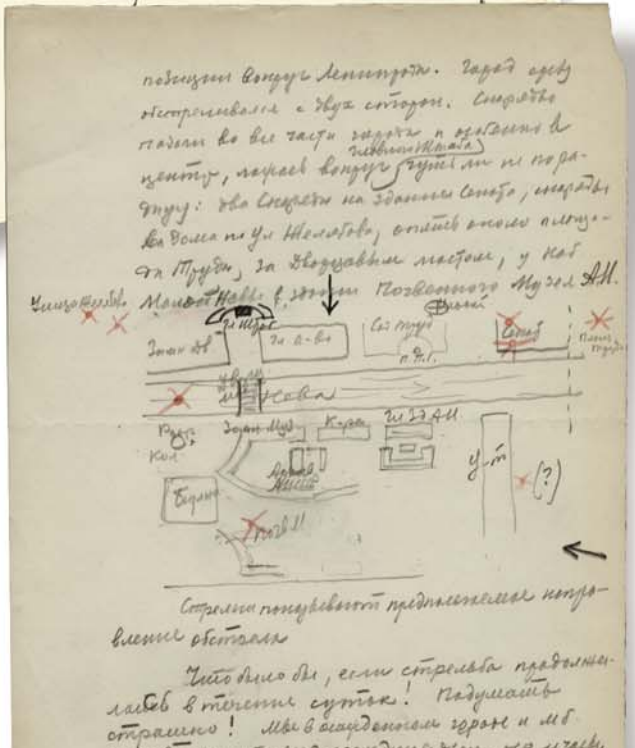 позиции вокруг Ленинграда. Город сразу
обстреливался с двух сторон. Снаряды
падали во все части города и особенно в
Главного Штаба
центр, ложась вокруг чуть ли не пора-
дуге: два снаряда на здание Сената, снаряды
на дома по ул Желябова, опять около площа-
ди Труда, за Дворцовым мостом, у наб
Малой Невы в здании Почвенного Музея АН.
Улица Желябова
Гл Штаб
Зимн Дв
Гл А-во
Сад Труд
п. П. I.
Сенат
Площ Труда
Нева
Рост. Кол.
Зоол Муз
К-ра
Гл Зд АН
У-т
(?)
Биржа
Почв!!
Стрелки показывают предполагаемое напра-
вление обстрела
Что было бы, если стрельба продолжи-
лась в течение суток! Подумать
страшно! Мы в осажденном городе и мб